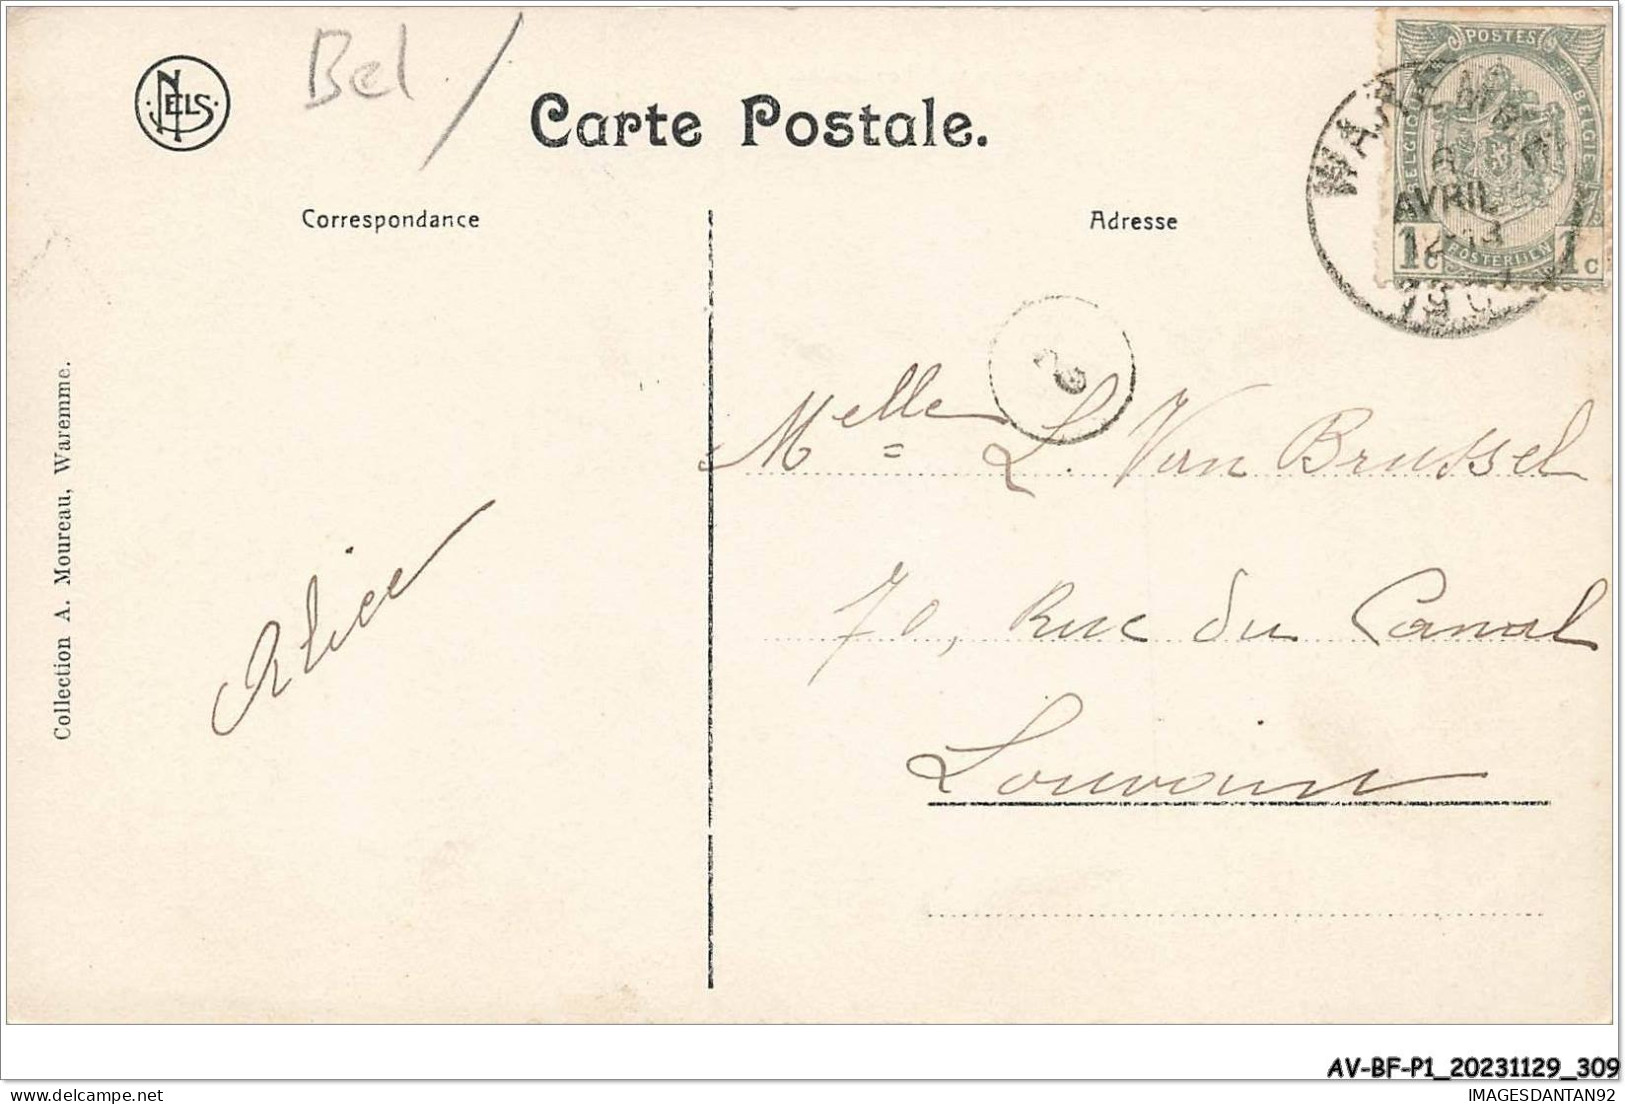 NELS
Bel /
Carte Postale.
Correspondance
Adresse
POSTES
BELGIQUE
BELGIE
POSTERIJEN
1c
1c
WAREMME
AVRIL
12-13
Melle L. Van Brussel
70, Rue du Canal
Louvain
Alice
Collection A. Moureau, Waremme.
AV-BF-P1_20231129_309
IMAGESDANTAN92